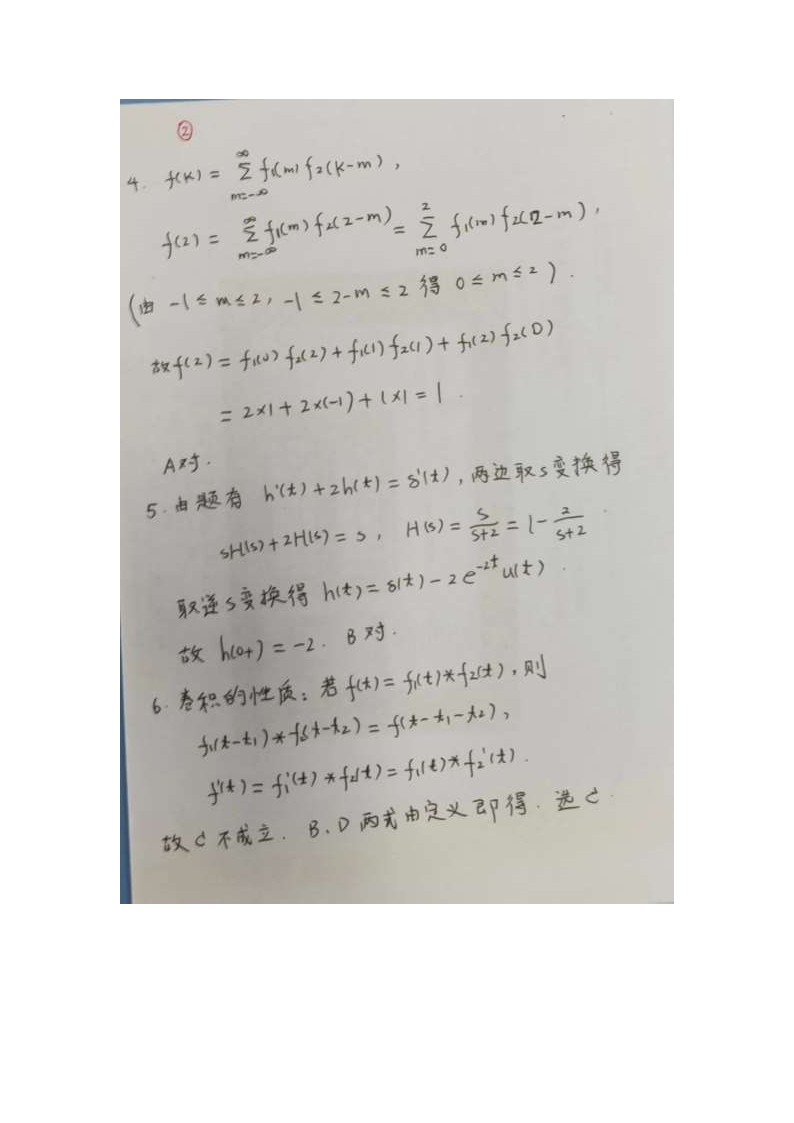 ②
4. f(k) = ∑_{m=-∞}^{∞} f₁(m) f₂(k-m),
f(2) = ∑_{m=-∞}^{∞} f₁(m) f₂(2-m) = ∑_{m=0}^{2} f₁(m) f₂(2-m),
(由 -1 ≤ m ≤ 2, -1 ≤ 2-m ≤ 2 得 0 ≤ m ≤ 2).
故f(2) = f₁(0) f₂(2) + f₁(1) f₂(1) + f₁(2) f₂(0)
= 2×1 + 2×(-1) + 1×1 = 1.
A对.
5. 由题有 h'(t) + 2h(t) = δ'(t), 两边取s变换得
sH(s) + 2H(s) = s, H(s) = s/(s+2) = 1 - 2/(s+2)
取逆s变换得 h(t) = δ(t) - 2e^{-2t}u(t).
故 h(0+) = -2. B对.
6. 卷积的性质: 若 f(t) = f₁(t)*f₂(t), 则
f₁(t-t₁)*f₂(t-t₂) = f(t-t₁-t₂),
f'(t) = f₁'(t)*f₂(t) = f₁(t)*f₂'(t).
故C不成立. B、D两式由定义即得. 选C.